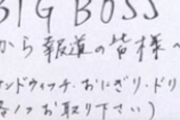 BIG BOSS
から報道の皆様へ
ンドウィッチ・おにぎり・ドリ
お取り下さい)